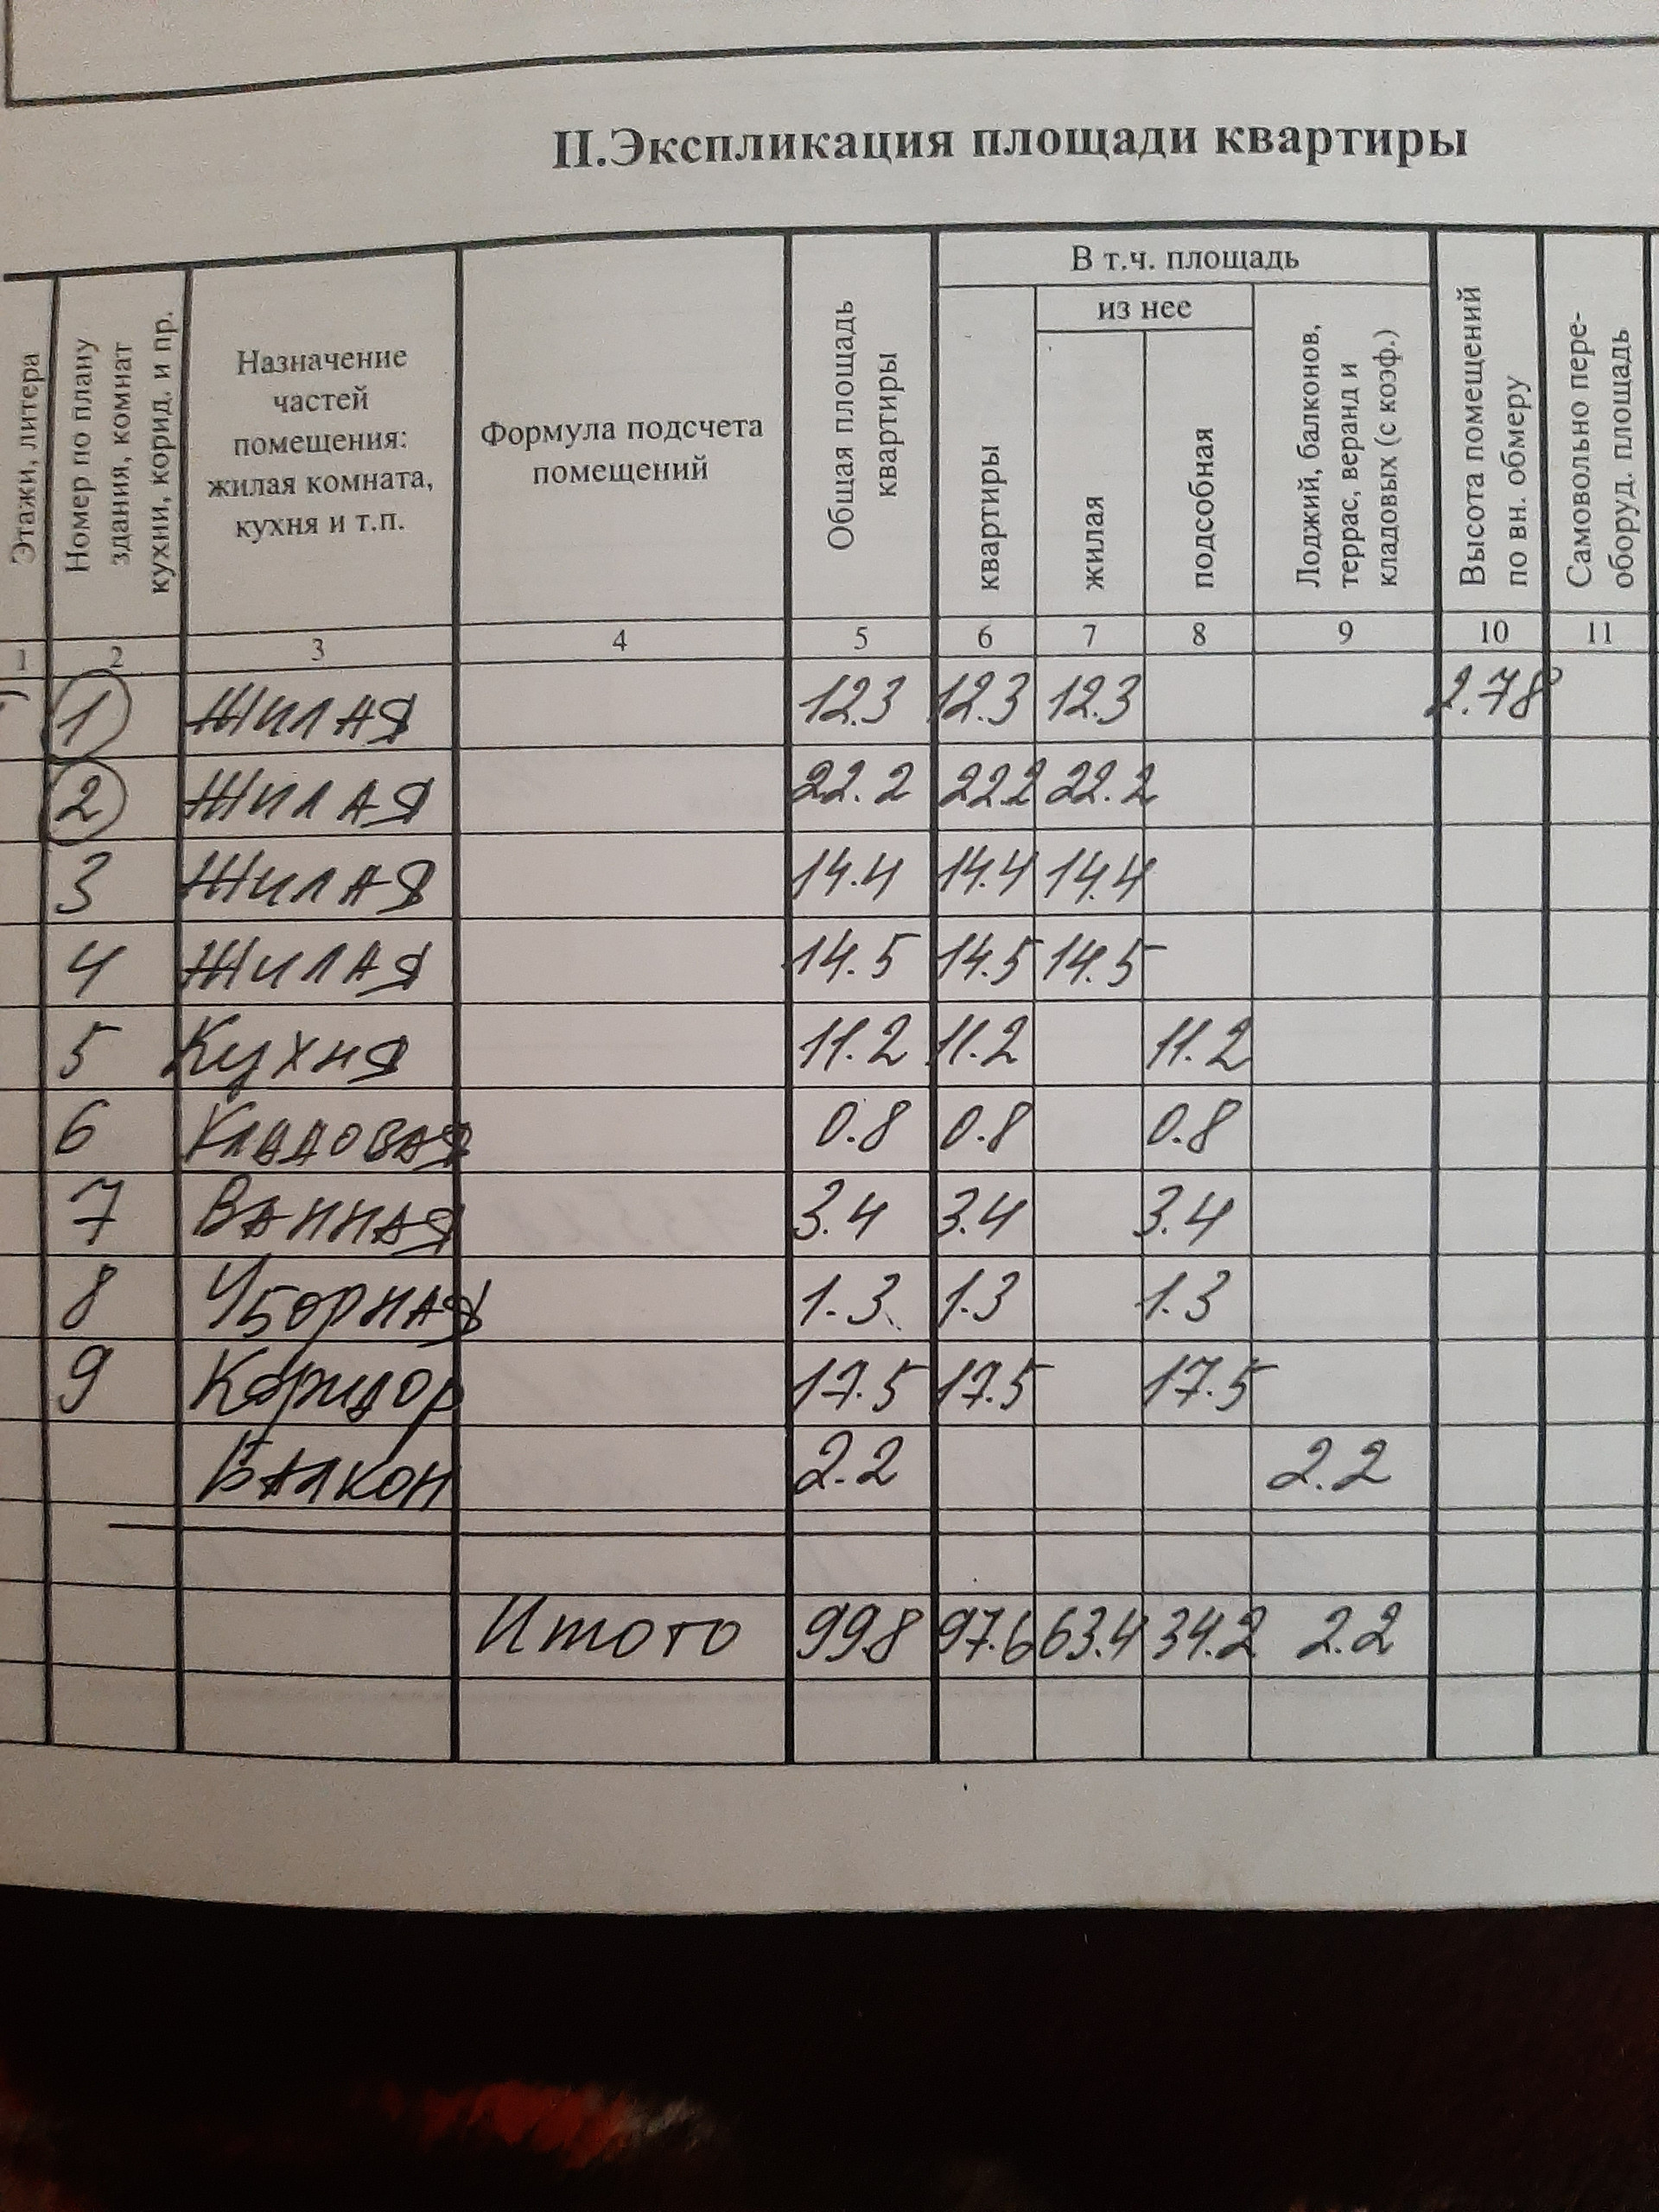 II.Экспликация площади квартиры
Этажи, литера
Номер по плану
здания, комнат
кухни, корид. и пр.
Назначение
частей
помещения:
жилая комната,
кухня и т.п.
Формула подсчета
помещений
Общая площадь
квартиры
В т.ч. площадь
из нее
квартиры
жилая
подсобная
Лоджий, балконов,
террас, веранд и
кладовых (с коэф.)
Высота помещений
по вн. обмеру
Самовольно пере-
оборуд. площадь
1 2 3 4 5 6 7 8 9 10 11
1 Жилая 12.3 12.3 12.3 2.78
2 Жилая 22.2 22.2 22.2
3 Жилая 14.4 14.4 14.4
4 Жилая 14.5 14.5 14.5
5 Кухня 11.2 11.2 11.2
6 Кладовая 0.8 0.8 0.8
7 Ванная 3.4 3.4 3.4
8 Уборная 1.3 1.3 1.3
9 Коридор 17.5 17.5 17.5
Балкон 2.2 2.2
Итого 99.8 97.6 63.4 34.2 2.2